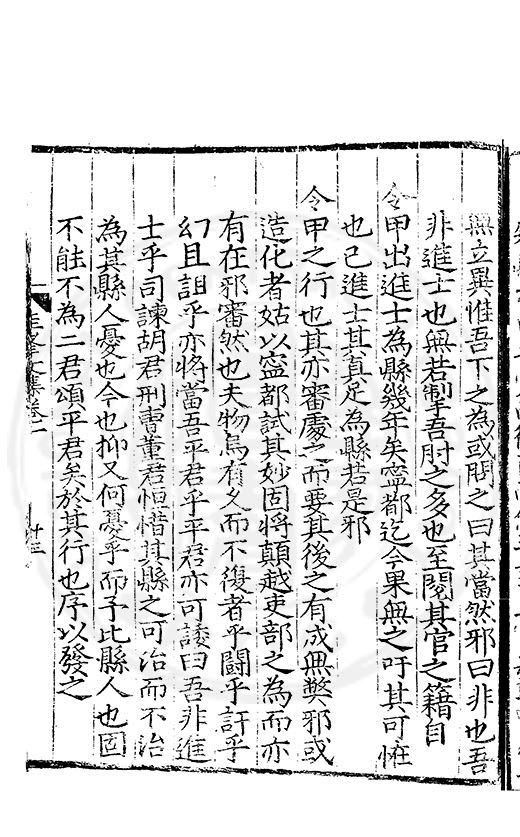 無立異惟吾下之為或問之曰其當然邪曰非也吾
非進士也無若掣吾肘之多也至閱其官之籍自
令甲出進士為縣幾年矣寧都迄今果無之吁其可恠
也已進士其真足為縣若是邪
令甲之行也其亦審處之而要其後之有成無弊邪或
造化者姑以寧都試其妙固將顛越吏部之為而亦
有在邪審然也夫物烏有久而不復者乎闘乎訐乎
幻且詛乎亦將當吾平君乎平君亦可諉曰吾非進
士乎司諫胡君刑曹董君恒惜其縣之可治而不治
為其縣人憂也今也抑又何憂乎而予比縣人也固
不能不為二君頌平君矣於其行也序以發之
文集卷二